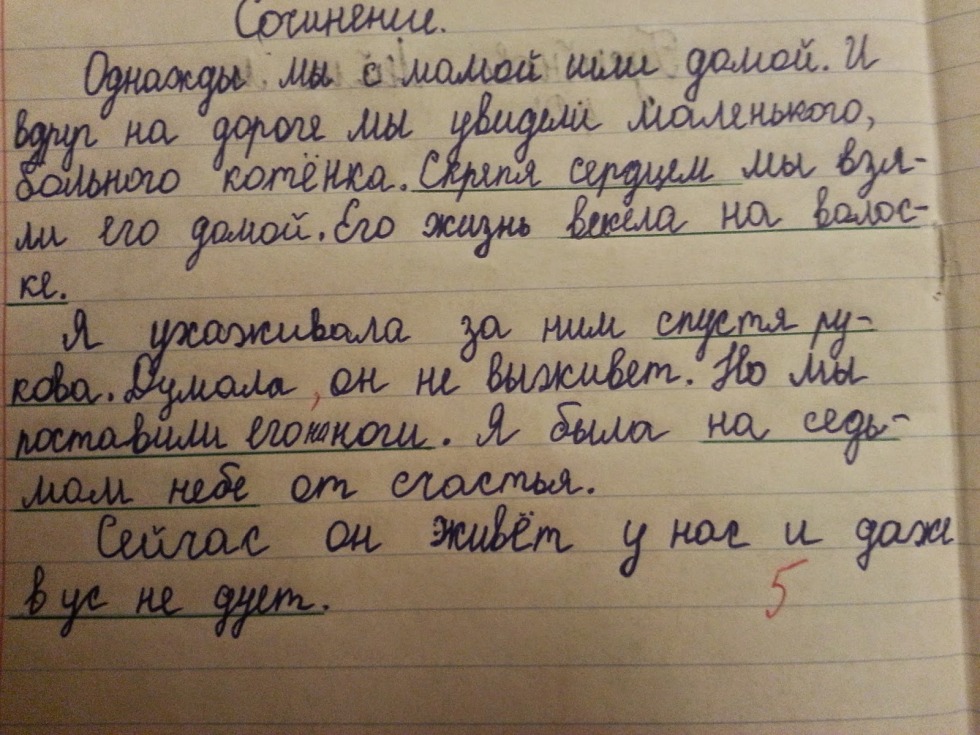 Сочинение.
Однажды мы с мамой шли домой. И
вдруг на дороге мы увидели маленького,
больного котёнка. Скрепя сердцем мы взя-
ли его домой. Его жизнь висела на волос-
ке.
Я ухаживала за ним спустя ру-
кова. Думала, он не выживет. Но мы
поставили его на ноги. Я была на седь-
мом небе от счастья.
Сейчас он живёт у нас и даже
в ус не дует.
5